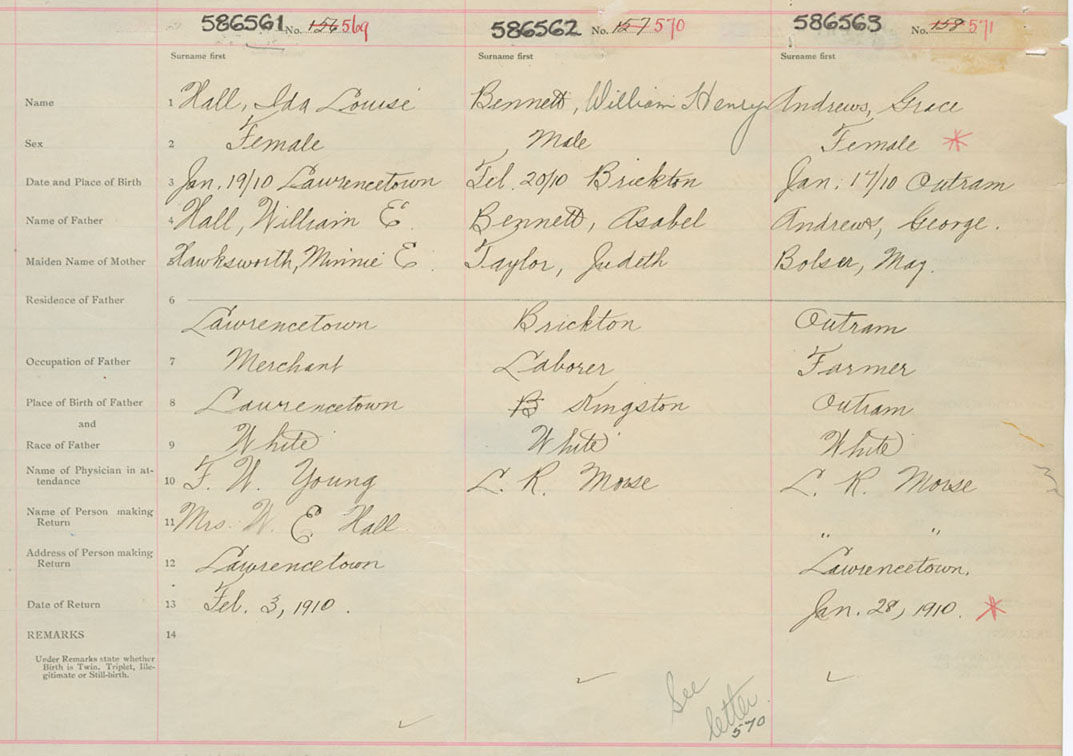 586561 No. 156 569 586562 No. 157 570 586563 No. 158 571
Surname first Surname first Surname first
Name 1 Hall, Ida Louise Bennett, William Henry Andrews, Grace
Sex 2 Female Male Female *
Date and Place of Birth 3 Jan. 19/10 Lawrencetown Feb. 20/10 Brickton Jan. 17/10 Outram
Name of Father 4 Hall, William E. Bennett, Asabel Andrews, George.
Maiden Name of Mother 5 Hawksworth, Minnie E. Taylor, Judeth Bolser, May.
Residence of Father 6
Lawrencetown Brickton Outram
Occupation of Father 7 Merchant Laborer Farmer
Place of Birth of Father 8 Lawrencetown B Kingston Outram
and
Race of Father 9 White White White
Name of Physician in at-
tendance 10 F. W. Young L. R. Morse L. R. Morse
Name of Person making
Return 11 Mrs. W. E. Hall " "
Address of Person making
Return 12 Lawrencetown Lawrencetown.
Date of Return 13 Feb. 3, 1910. Jan. 28, 1910. *
REMARKS 14
Under Remarks state whether
Birth is Twin, Triplet, Ille-
gitimate or Still-birth.
See
letter
570